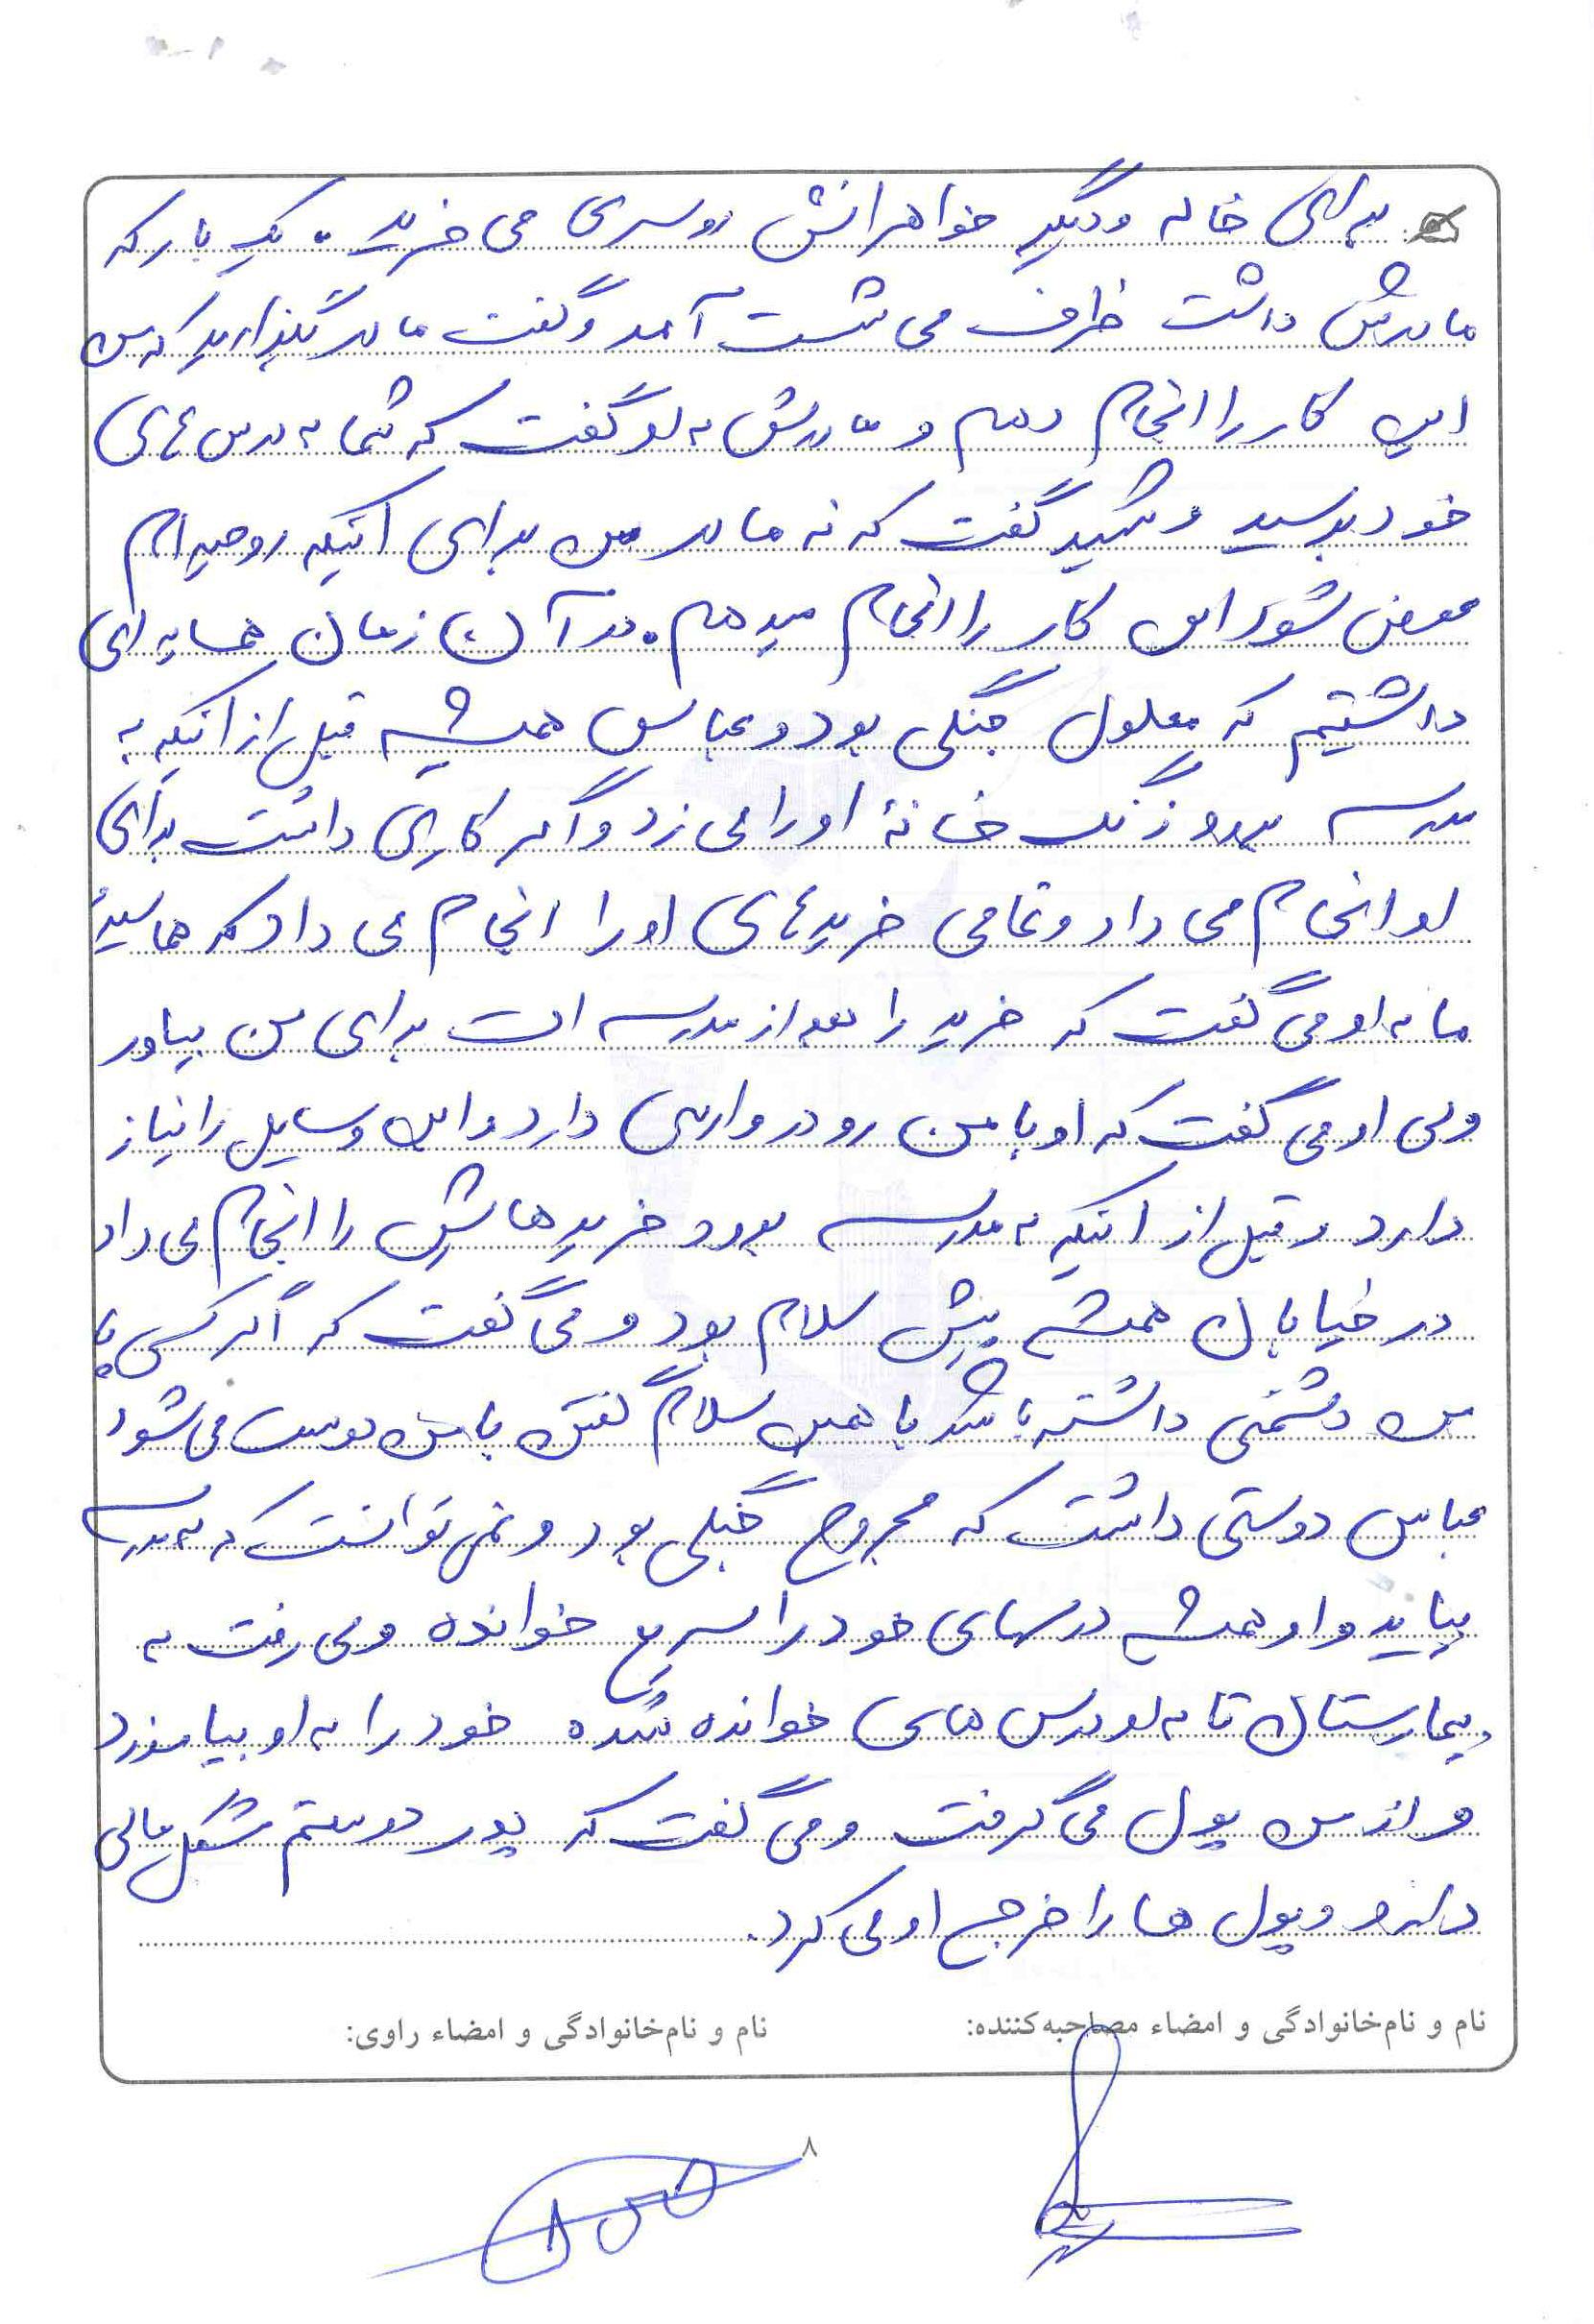 برای خاله و دیگر خواهرانش روسری می خرید. یک بار که
مادرش داشت ظرف می شست آمد و گفت مادر بگذارید که من
این کار را انجام دهم و مادرش به او گفت که شما به درس های
خود برسید و شهید گفت که نه مادر من برای اینکه روحیه ام
عوض شود این کار را انجام میدهم. در آن زمان همسایه ای
داشتیم که معلول جنگی بود و عباس همیشه قبل از اینکه به
مدرسه برود زنگ خانهٔ او را می زد و اگر کاری داشت برای
او انجام می داد و تمامی خریدهای او را انجام می داد که همسایهٔ
ما به او می گفت که خرید را بعد از مدرسه ات برای من بیاور
ولی او می گفت که او با من رودروایسی دارد و این وسایل را نیاز
دارد و قبل از اینکه به مدرسه برود خریدهایش را انجام می داد
در خیابان همیشه پیش سلام بود و می گفت که اگر کسی با
من دشمنی داشته باشد با همین سلام گفتن با من دوست می شود
عباس دوستی داشت که مجروح جنگی بود و نمی توانست که به مدرسه
بیاید و او همیشه درسهای خود را سریع خوانده و می رفت به
بیمارستان تا به او درس های خوانده شده خود را به او بیاموزد
و از من پول می گرفت و می گفت که پدر دوستم مشکل مالی
دارد و پول ها را خرج او می کرد.
نام و نام‌خانوادگی و امضاء مصاحبه‌کننده: نام و نام‌خانوادگی و امضاء راوی:
۸